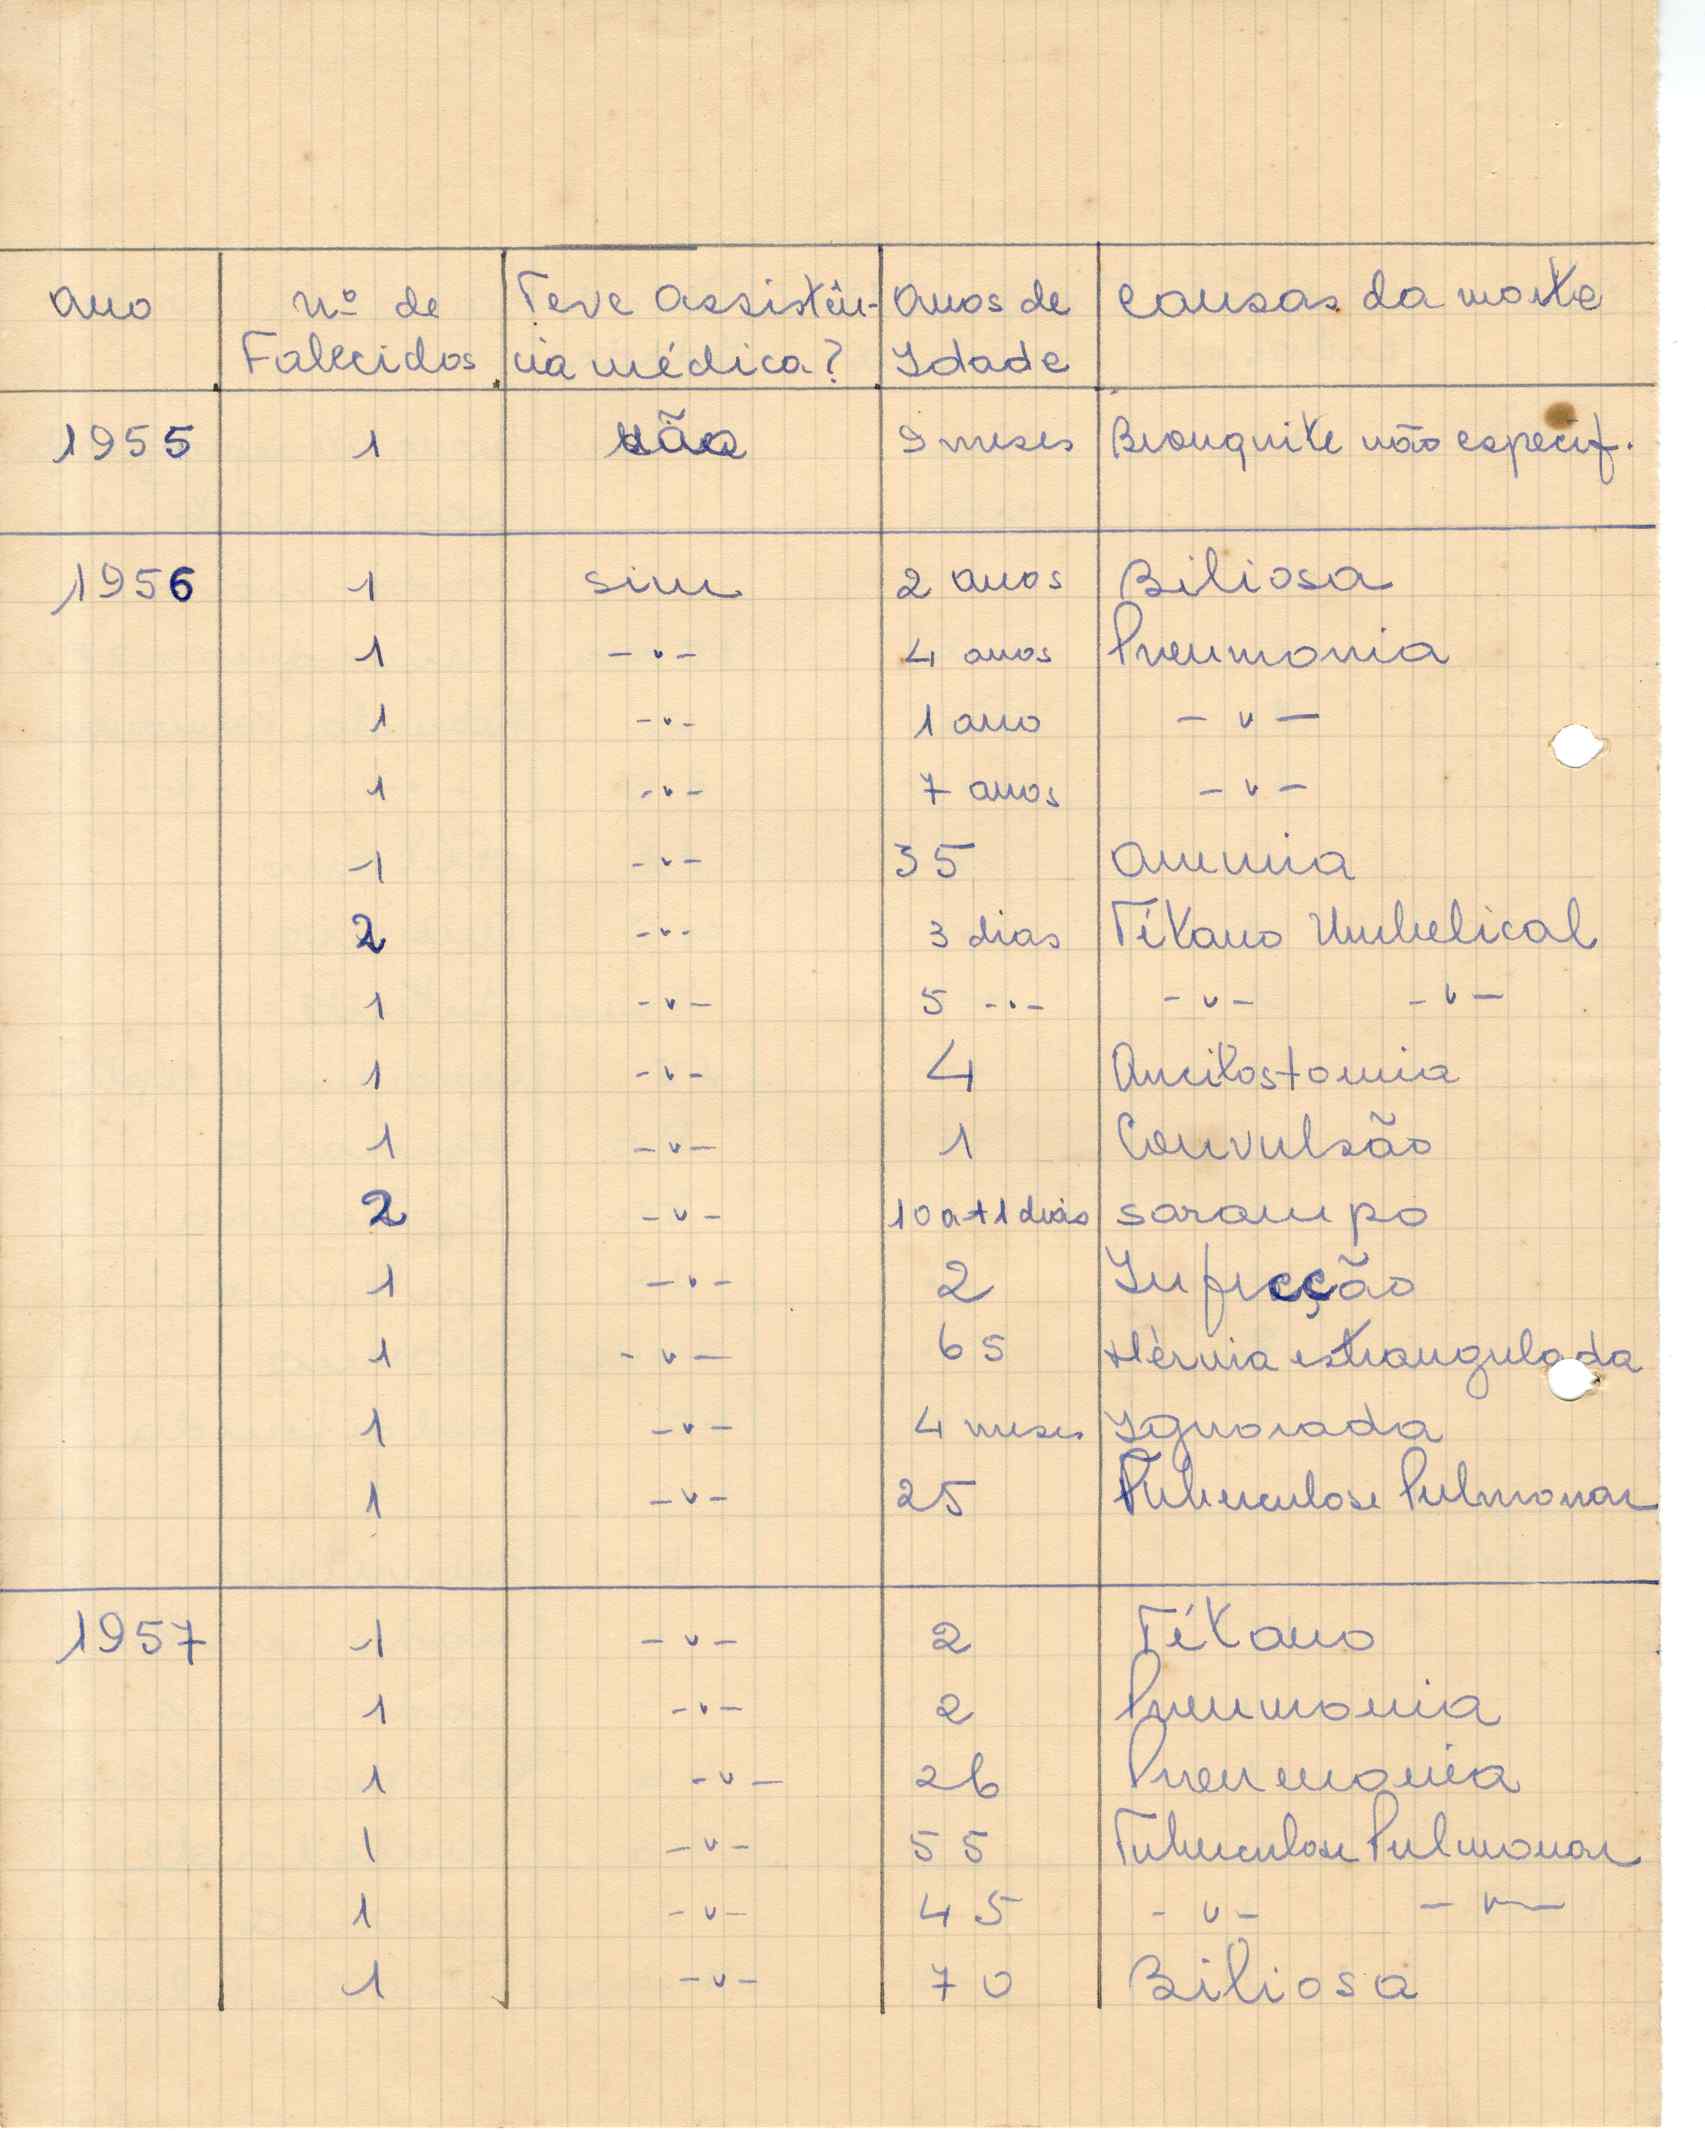 Ano nº de Falecidos Teve Assistência médica? Anos de Idade Causas da morte
1955 1 Não 9 meses Bronquite não especif.
1956 1 Sim 2 anos Biliosa
1 -"- 4 anos Pneumonia
1 -"- 1 ano -"-
1 -"- 7 anos -"-
1 -"- 35 Anemia
2 -"- 3 dias Tétano Umbelical
1 -"- 5 -"- -"- -"-
1 -"- 4 Ancilostomia
1 -"- 1 Convulsão
2 -"- 10 a + 1 dias Sarampo
1 -"- 2 Infecção
1 -"- 65 Hérnia estrangulada
1 -"- 4 meses Ignorada
1 -"- 25 Tuberculose Pulmonar
1957 1 -"- 2 Tétano
1 -"- 2 Pneumonia
1 -"- 26 Pneumonia
1 -"- 55 Tuberculose Pulmonar
1 -"- 45 -"- -"-
1 -"- 70 Biliosa